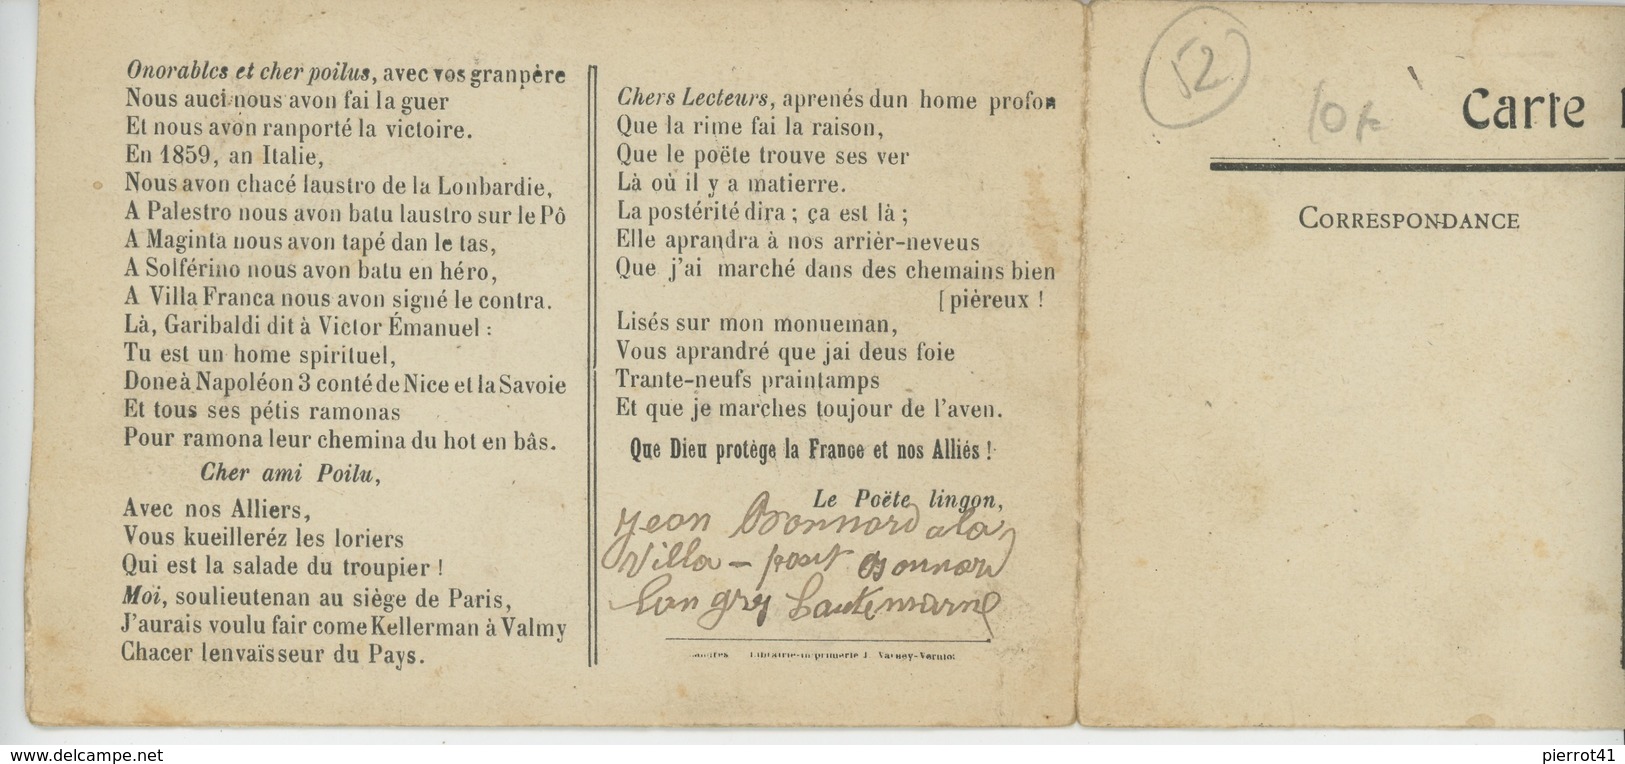 Onorables et cher poilus, avec vos granpère
Nous auci nous avon fai la guer
Et nous avon ranporté la victoire.
En 1859, an Italie,
Nous avon chacé laustro de la Lonbardie,
A Palestro nous avon batu laustro sur le Pô
A Maginta nous avon tapé dan le tas,
A Solférino nous avon batu en héro,
A Villa Franca nous avon signé le contra.
Là, Garibaldi dit à Victor Émanuel :
Tu est un home spirituel,
Done à Napoléon 3 conté de Nice et la Savoie
Et tous ses pétis ramonas
Pour ramona leur chemina du hot en bâs.
Cher ami Poilu,
Avec nos Alliers,
Vous kueilleréz les loriers
Qui est la salade du troupier !
Moi, soulieutenan au siège de Paris,
J'aurais voulu fair come Kellerman à Valmy
Chacer lenvaïsseur du Pays.
Chers Lecteurs, aprenés dun home profon
Que la rime fai la raison,
Que le poëte trouve ses ver
Là où il y a matierre.
La postérité dira ; ça est là ;
Elle aprandra à nos arrièr-neveus
Que j'ai marché dans des chemains bien
[pièreux !
Lisés sur mon monueman,
Vous aprandré que jai deus foie
Trante-neufs praintamps
Et que je marches toujour de l'aven.
Que Dieu protège la France et nos Alliés !
Le Poëte lingon,
Jean Bonnard a la
Villa - pont Bonnard
Langres haute marne
Langres Librairie-imprimerie J. Varney-Verniot
52
10 f
Carte
CORRESPONDANCE
pierrot41